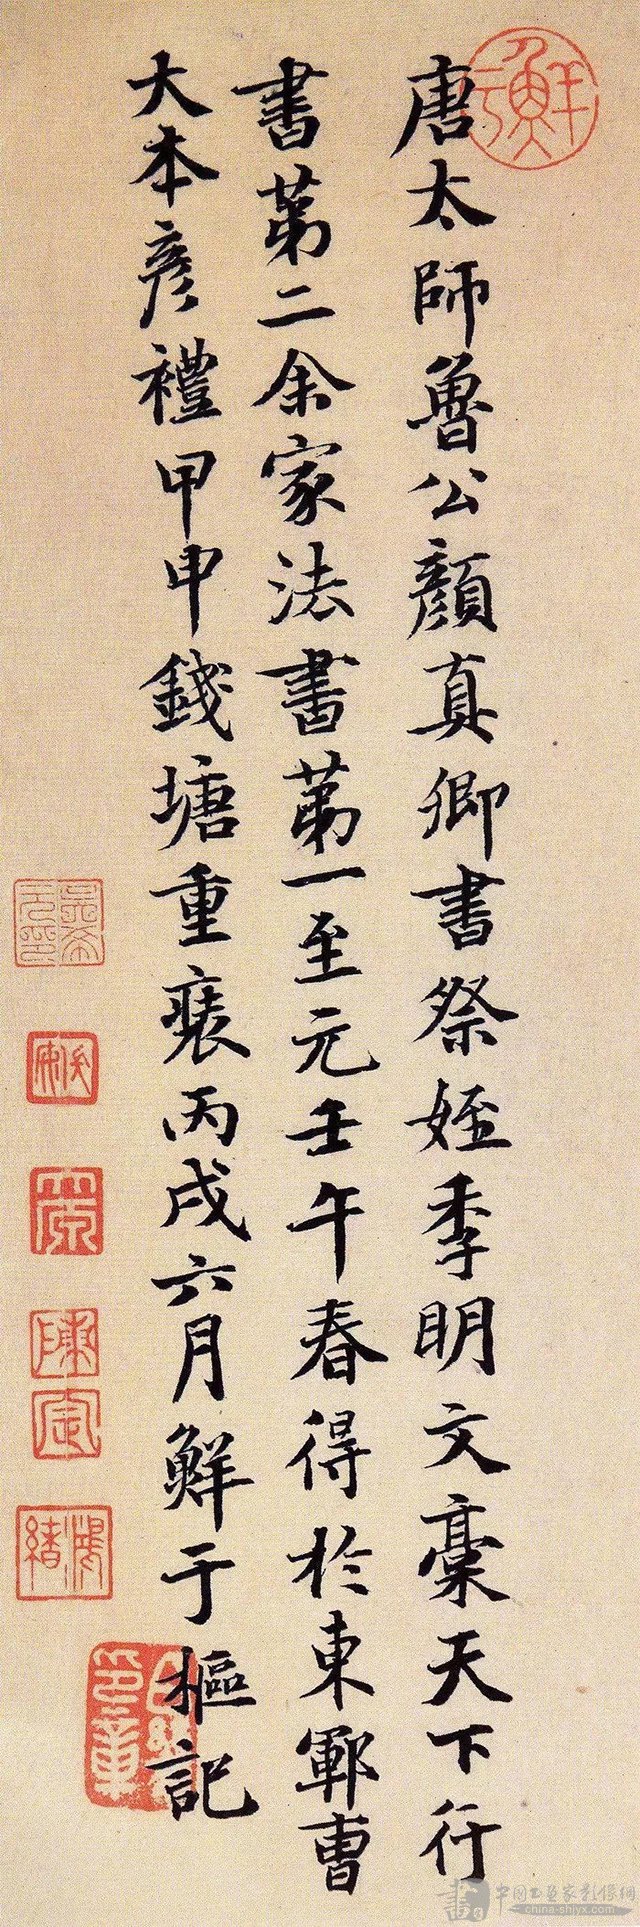 唐太師魯公顏真卿書祭姪季明文稾天下行
書第二余家法書第一至元壬午春得於東鄆曹
大本彥禮甲申錢塘重裱丙戌六月鮮于樞記
鮮于
陳定
鴻緒
china-shjyx.com